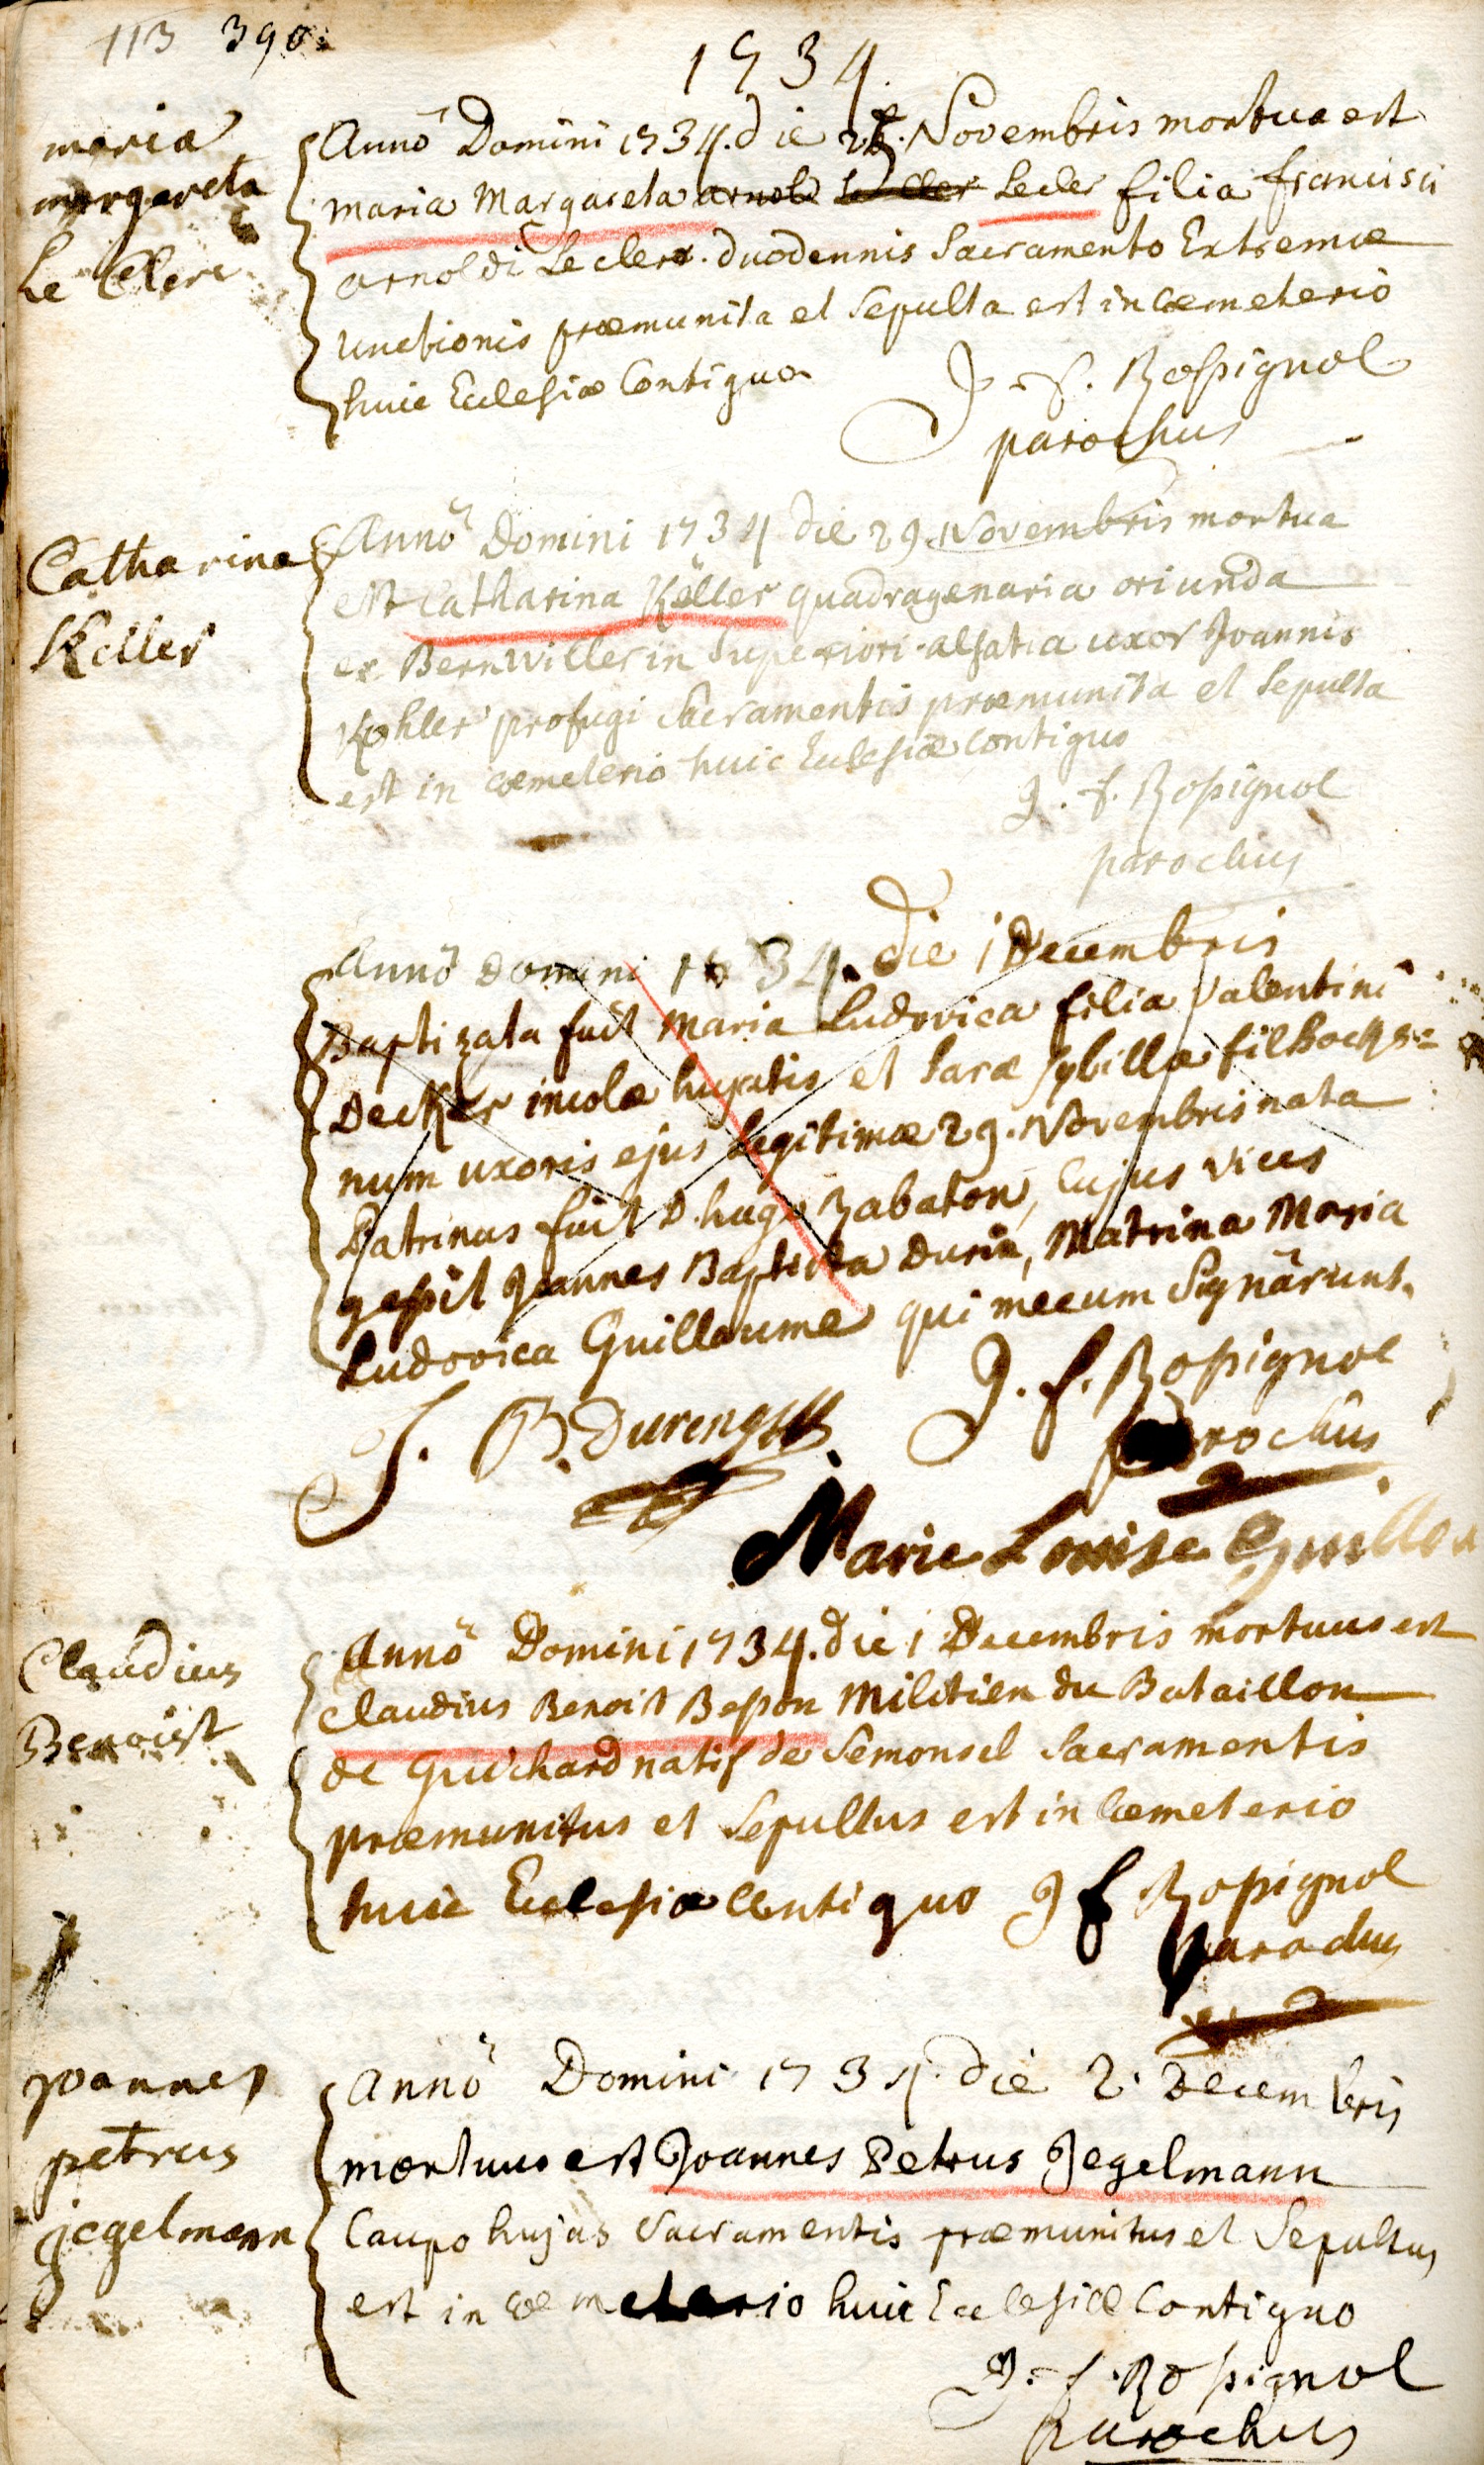 113 390.
1734.
maria
margareta
Le Clerc
Annõ Domini 1734. die Novembris mortua est
maria Margareta Lecler filia francisci
arnoldi Lecler. duodennis Sacramento Extremæ
Unctionis præmunita et Sepulta est in Cœmeterio
huic Ecclesiæ Contiguo
J. f. Rossignol
parochus
Catharina
Keller
Annõ Domini 1734 die 29. Novembris mortua
est Catharina Keller quadragenaria oriunda
ex Bernwiller in Superiori alsatia uxor Joannis
Kohler profugi Sacramentis præmunita et Sepulta
est in cœmeterio huic Ecclesiæ Contiguo
J. f. Rossignol
parochus
Annõ domini 1734. die 1 Decembris
Baptizata fuit Maria Ludovica filia Valentini
Decker incolæ hujatis et Saræ Sybillæ
num uxoris ejus Legitimæ 29. Novembris nata
Patrinus fuit D. hugo Rabaton, Cujus vices
gessit Joannes Baptista Matrina Maria
Ludovica Guillaume qui mecum Signãrunt.
J. f. Rossignol
parochus
J. B. Dureng
Marie Louise
Claudius
Benoist
Annõ Domini 1734. die 1 Decembris mortuus est
Claudius Benoit Besson Militien du Bataillon
de Guichard natif de Semonsel Sacramentis
præmunitus et Sepultus est in Cœmeterio
huic Ecclesiæ Contiguo J f Rossignol
parochus
joannes
petrus
jegelmann
Annõ Domini 1734. die 2. Decembris
mortuus est Joannes Petrus Jegelmann
Caupo hujas Sacramentis præmunitus et Sepultus
est in cœmeterio huic Ecclesiæ Contiguo
J. f. Rossignol
Parochus